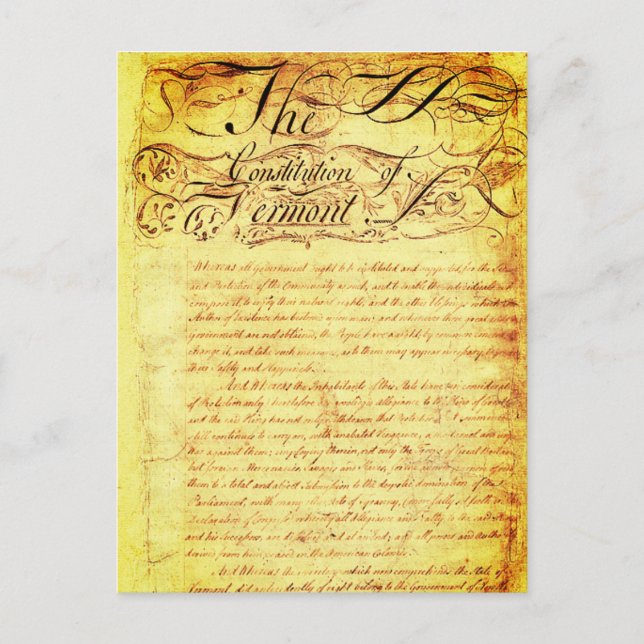 The
Constitution of
Vermont
Whereas all Government ought to be instituted and supported, for the
and Protection of the Community as such, and to enable the individuals
compose it, to enjoy their natural rights, and the other blessings which
Author of Existence has bestowed upon man; and whenever these great ends
Government are not obtained, the People have a right, by common consent
change it, and take such measures, as to them may appear necessary
their Safety and Happiness.
And Whereas the Inhabitants of this State have in considerat
of Protection only heretofore acknowledged allegiance to the King of
and the said King has not only withdrawn that Protection but commenced
still continues to carry on, with unabated Vengeance, a most cruel and
War against them; employing therein, not only the Troops of Great Britain
but foreign Mercenaries, Savages and Slaves, for the purpose of
them to a total and abject Submission to the despotic domination of the
Parliament, with many other Acts of Tyranny, (more fully set forth in the
Declaration of Congress) whereby all Allegiance and Fealty to the said King
and his Successors, are dissolved and at an end; and all power and Authority
derived from him ceased in the American Colonies.
And Whereas the Territory which now comprehends the State of
Vermont, did antecedently of right belong to the Government of